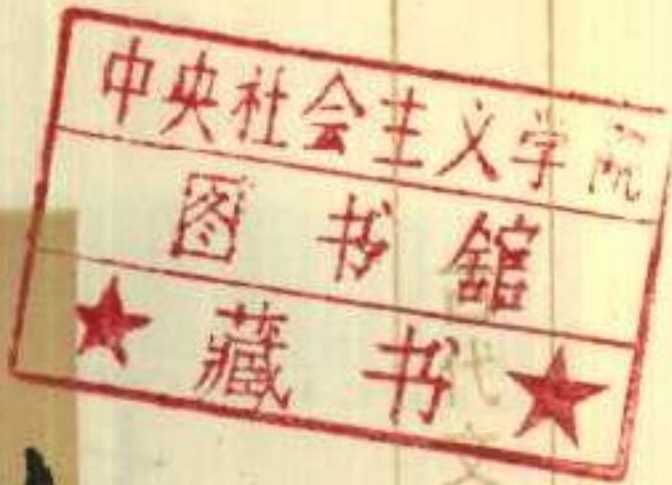 中央社会主义学院
图书舘
★藏书★
代文